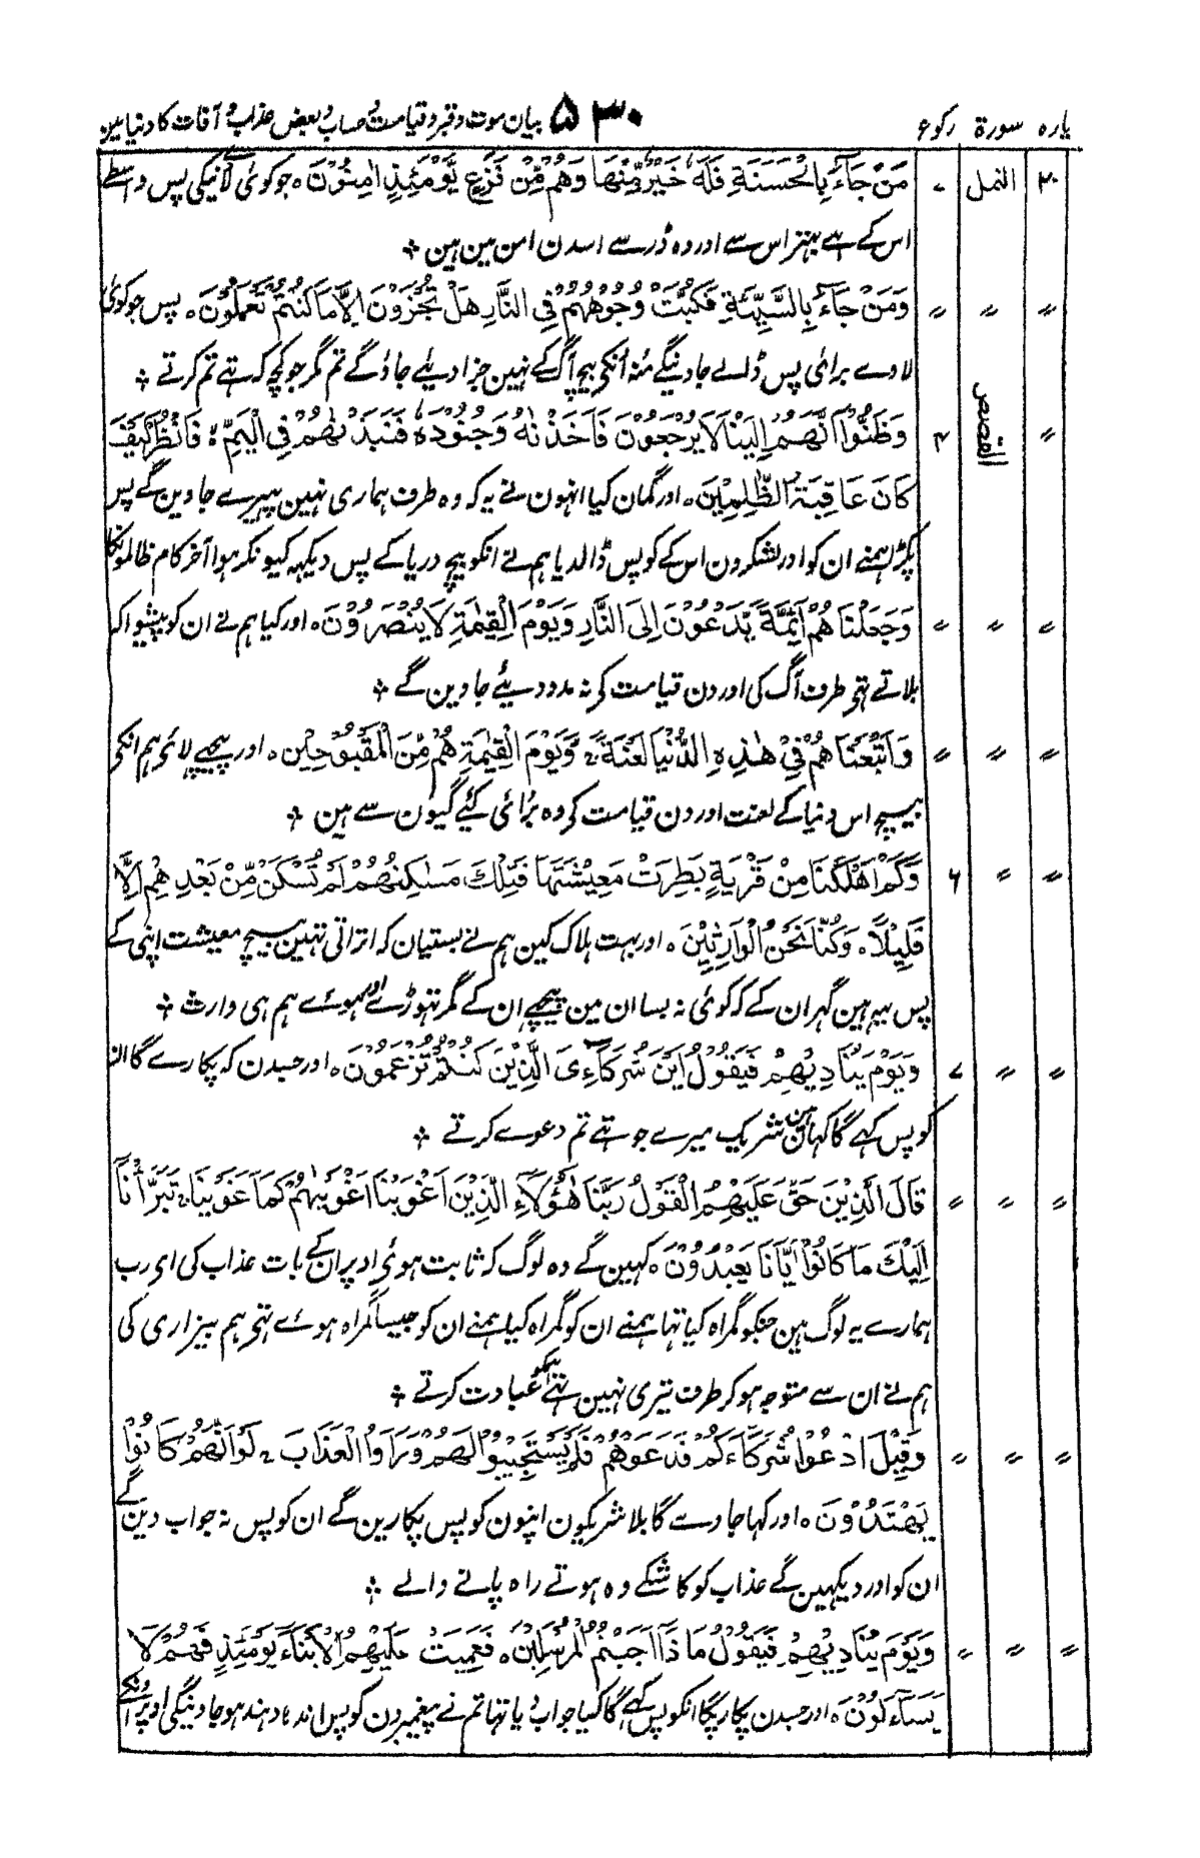 پارہ سورۃ رکوع ۵۳۰ بیان موت و قبر و قیامت و حساب و بعض عذاب و آفات کا دنیا مین
۲۰ النمل ۷ مَنْ جَآءَ بِالْحَسَنَةِ فَلَهٗ خَيْرٌ مِّنْهَا وَهُمْ مِّنْ فَزَعٍ يَّوْمَئِذٍ اٰمِنُوْنَ ہ جو کوئی لائے نیکی پس واسطے
اس کے ہے بہتر اس سے اور وہ ڈر سے اسدن امن مین ہین ؞
〃 〃 〃 وَمَنْ جَآءَ بِالسَّيِّئَةِ فَكُبَّتْ وُجُوْهُهُمْ فِي النَّارِ هَلْ تُجْزَوْنَ اِلَّا مَا كُنْتُمْ تَعْمَلُوْنَ ہ پس جو کوئی
لاوے برائی پس ڈالے جاوینگے منہ انکی بیچ آگ کے نہین جزا دیئے جاؤگے تم مگر جو کچھ کہ تہے تم کرتے ؞
〃 القصص ۴ وَظَنُّوْا اَنَّهُمْ اِلَيْنَا لَا يُرْجَعُوْنَ فَاَخَذْنٰهُ وَجُنُوْدَهٗ فَنَبَذْنٰهُمْ فِي الْيَمِّ ۚ فَانْظُرْ كَيْفَ
كَانَ عَاقِبَةُ الظّٰلِمِيْنَ ہ اور گمان کیا انہون نے یہ کہ وہ طرف ہماری نہین پہیرے جاوین گے پس
پکڑا ہمنے ان کو اور لشکرون اس کے کو پس ڈالدیا ہم نے انکو بیچ دریا کے پس دیکہہ کیونکر ہوا آخر کام ظالمونکا
〃 〃 〃 وَجَعَلْنَا هُمْ اَئِمَّةً يَّدْعُوْنَ اِلَى النَّارِ وَيَوْمَ الْقِيٰمَةِ لَا يُنْصَرُوْنَ ہ اور کیا ہم نے ان کو پیشوا کہ
بلاتے تہے طرف آگ کی اور دن قیامت کے نہ مدد دیئے جاوین گے ؞
〃 〃 〃 وَاَتْبَعْنَا هُمْ فِيْ هٰذِهِ الدُّنْيَا لَعْنَةً ۚ وَيَوْمَ الْقِيٰمَةِ هُمْ مِّنَ الْمَقْبُوْحِيْن ہ اور پیچھے لائے ہم انکی
بیچ اس دنیا کے لعنت اور دن قیامت کے وہ برائی کئے گیون سے ہین ؞
〃 〃 ۶ وَكَمْ اَهْلَكْنَا مِنْ قَرْيَةٍ بَطِرَتْ مَعِيْشَتَهَا فَتِلْكَ مَسٰكِنُهُمْ لَمْ تُسْكَنْ مِّنْ بَعْدِ هِمْ اِلَّا
قَلِيْلًا ہ وَكُنَّا نَحْنُ الْوَارِثِيْنَ ہ اور بہت ہلاک کین ہم نے بستیان کہ اتراتی تہین بیچ معیشت اپنی کے
پس یہ ہین گہر ان کے کہ کوئی نہ بسا ان مین پیچھے ان کے مگر تہوڑے اور ہوئے ہم ہی وارث ؞
〃 〃 ۷ وَيَوْمَ يُنَادِيْهِمْ فَيَقُوْلُ اَيْنَ شُرَكَآءِىَ الَّذِيْنَ كُنْتُمْ تَزْعُمُوْنَ ہ اور جسدن کہ پکارے گا ان
کو پس کہے گا کہان ہین شریک میرے جو تہے تم دعوے کرتے ؞
〃 〃 〃 قَالَ الَّذِيْنَ حَقَّ عَلَيْهِمُ الْقَوْلُ رَبَّنَا هٰؤُلَآءِ الَّذِيْنَ اَغْوَيْنَا اَغْوَيْنٰهُمْ كَمَا غَوَيْنَا ۚ تَبَرَّأْنَا
اِلَيْكَ مَا كَانُوْا اِيَّانَا يَعْبُدُوْنَ ہ کہین گے وہ لوگ کہ ثابت ہوئی اوپر ان کے بات عذاب کی اے رب
ہمارے یہ لوگ ہین جنکو گمراہ کیا تہا ہمنے ان کو گمراہ کیا ہمنے ان کو جیسا گمراہ ہوئے تہے ہم بیزاری کی
ہم نے ان سے متوجہ ہوکر طرف تیری نہین تہے ہمکو عبادت کرتے ؞
〃 〃 〃 وَقِيْلَ ادْعُوْا شُرَكَآءَكُمْ فَدَعَوْهُمْ فَلَمْ يَسْتَجِيْبُوْا لَهُمْ وَرَاَوُا الْعَذَابَ ۚ لَوْ اَنَّهُمْ كَانُوْا
يَهْتَدُوْنَ ہ اور کہا جاوے گا بلا شریکون اپنون کو پس پکارین گے ان کو پس نہ جواب دین گے
ان کو اور دیکہین گے عذاب کو کاشکے وہ ہوتے راہ پانے والے ؞
〃 〃 〃 وَيَوْمَ يُنَادِيْهِمْ فَيَقُوْلُ مَا ذَآ اَجَبْتُمُ الْمُرْسَلِيْنَ ہ فَعَمِيَتْ عَلَيْهِمُ الْاَنْبَآءُ يَوْمَئِذٍ فَهُمْ لَا
يَتَسَآءَلُوْنَ ہ اور جسدن پکاریگا انکو پس کہے گا کیا جواب دیا تہا تم نے پیغمبرون کو پس اندہا دہند ہو جاوینگی اوپر اونکے